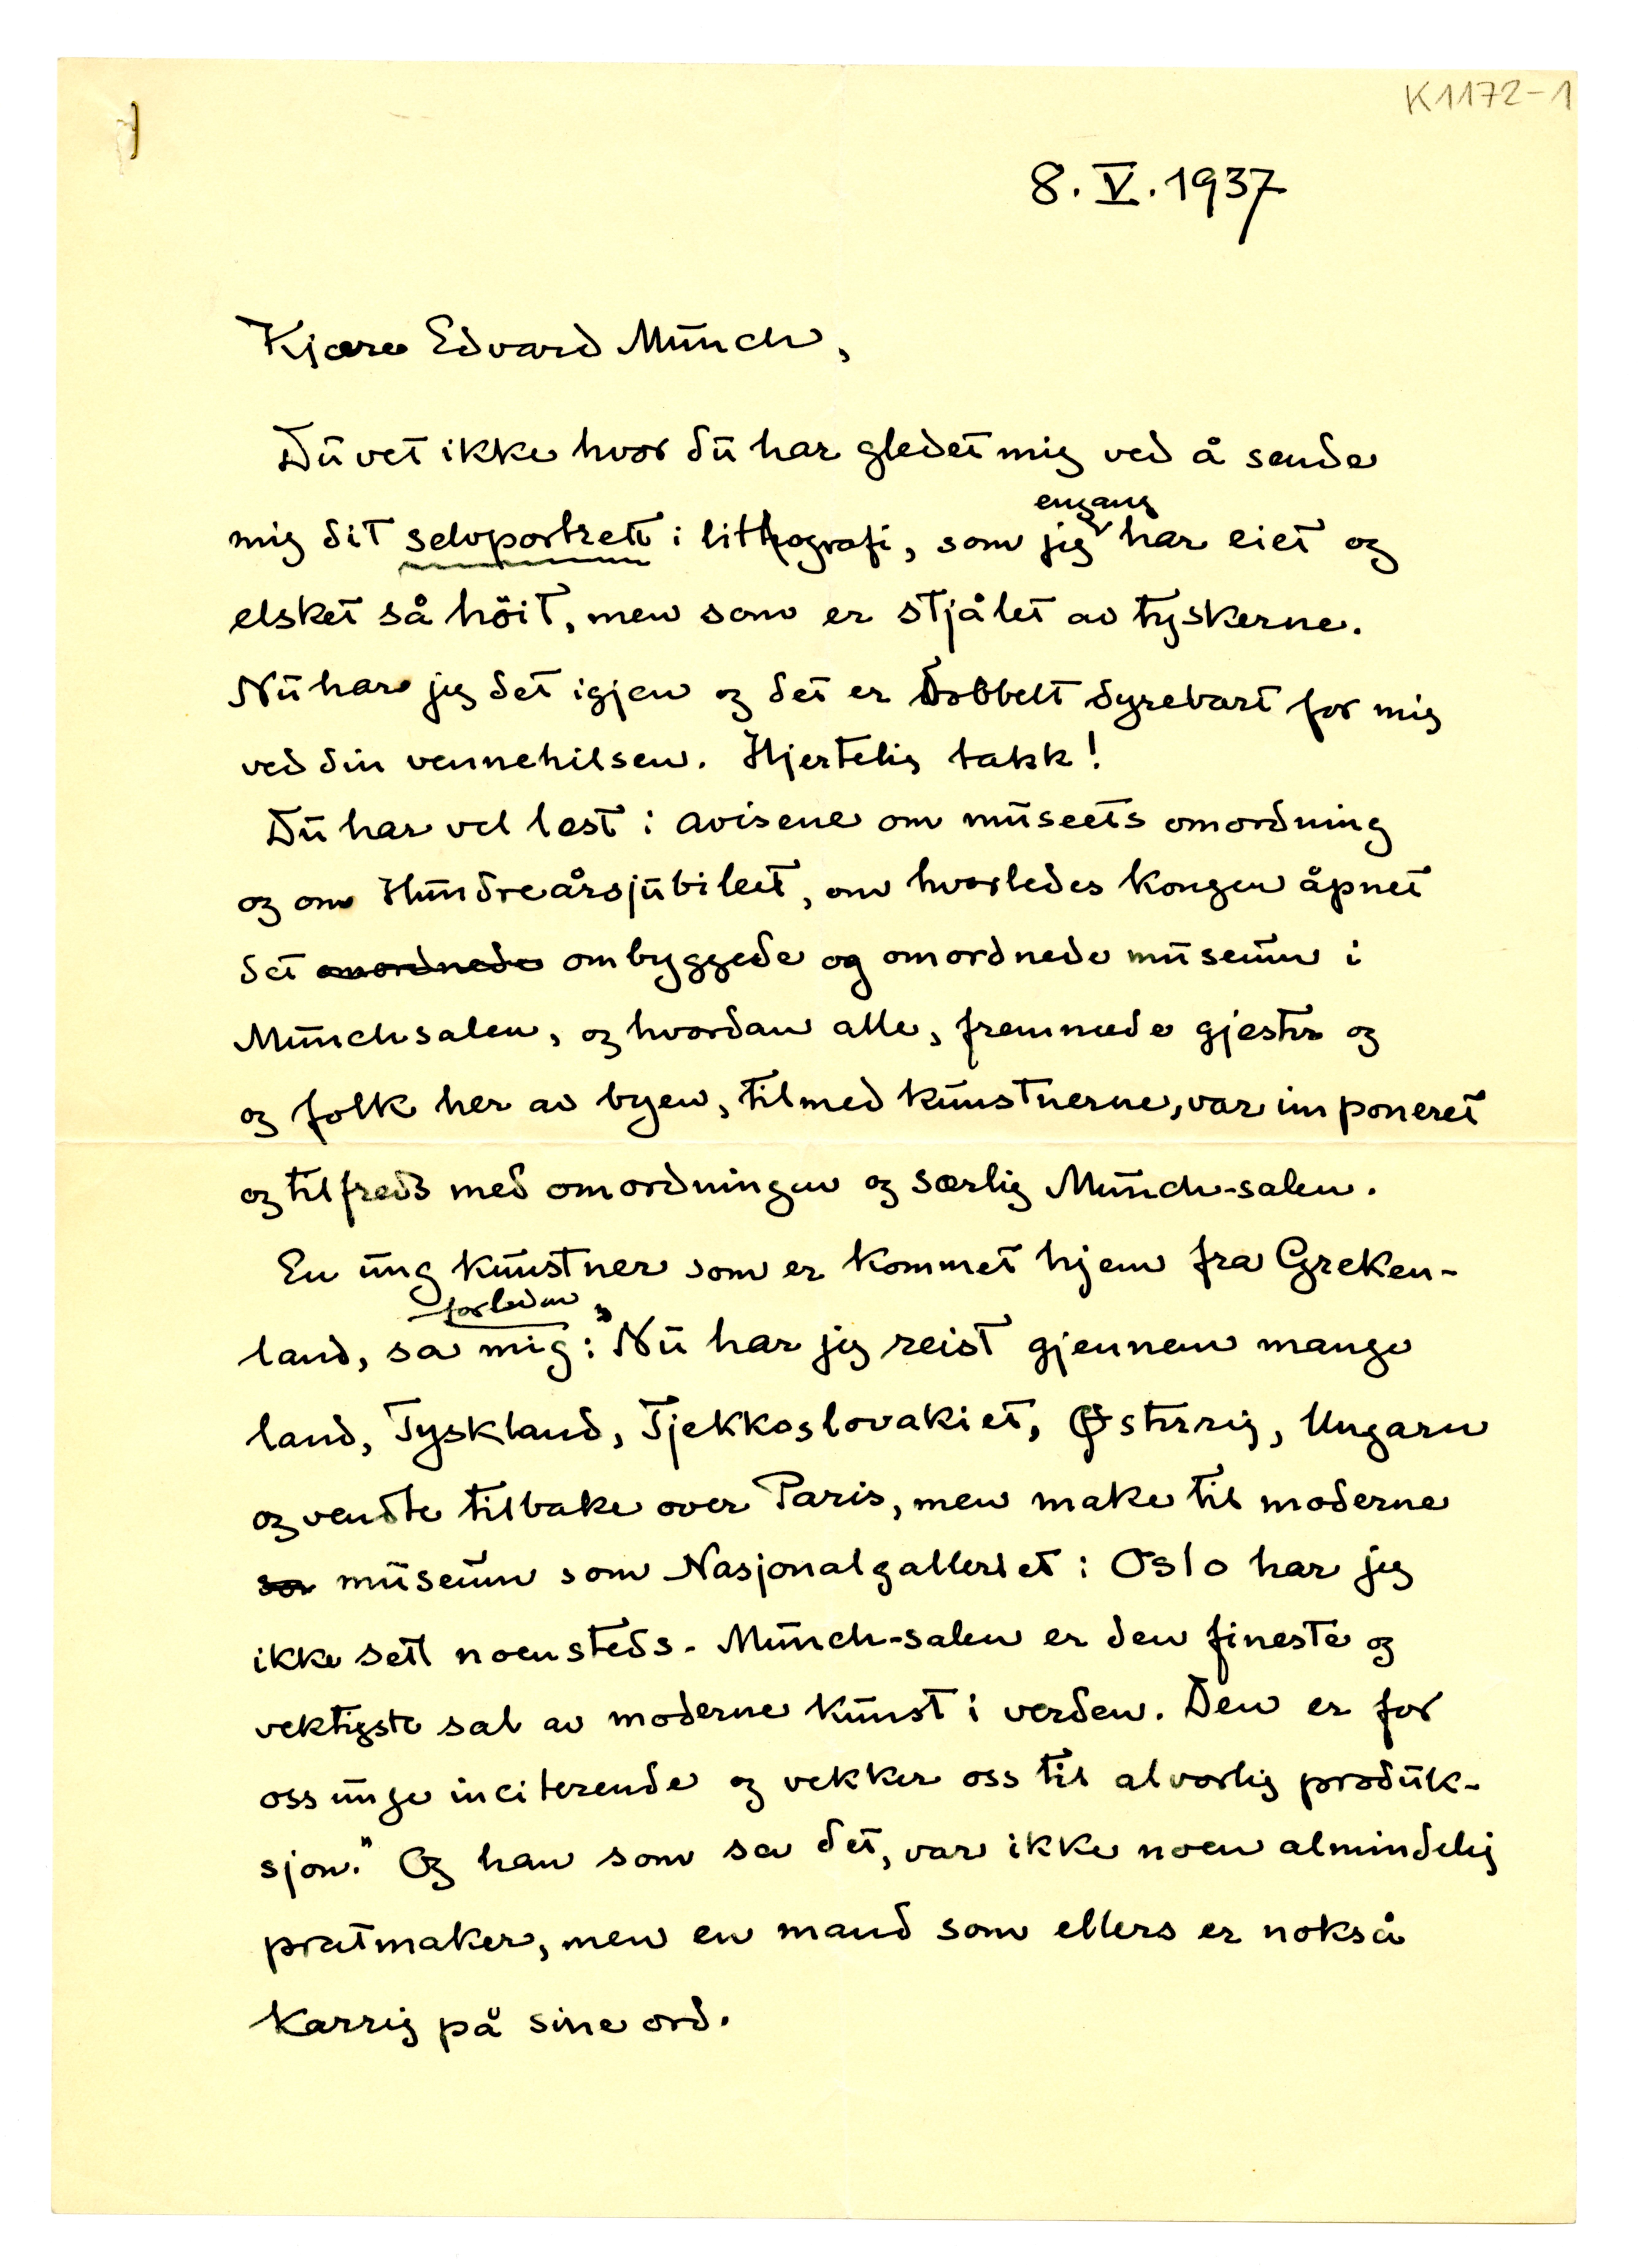 K1172-1
8. V. 1937
Kjære Edvard Munch,
Du vet ikke hvor du har gledet mig ved å sende
engang
mig dit selvportrett i lithografi, som jeg har eiet og
elsket så höit, men som er stjålet av tyskerne.
Nu har jeg det igjen og det er dobbelt dyrebart for mig
ved din vennehilsen. Hjertelig takk!
Du har vel læst i avisene om museets omordning
og om Hundreårsjubileet, om hvorledes kongen åpnet
det omordnede ombyggede og omordnede museum i
Munchsalen, og hvordan alle, fremmede gjester og
og folk her av byen, tilmed kunstnerne, var imponeret
og tilfreds med omordningen og særlig Munch-salen.
En ung kunstner som er kommet hjem fra Greken-
forleden
land, sa mig: "Nu har jeg reist gjennem mange
land, Tyskland, Tjekkoslovakiet, Østerrig, Ungarn
og vendte tilbake over Paris, men make til moderne
so museum som Nasjonalgalleriet i Oslo har jeg
ikke sett noensteds. Munch-salen er den fineste og
vektigste sal av moderne kunst i verden. Den er for
oss unge inciterende og vekker oss til alvorlig produk-
sjon." Og han som sa det, var ikke noen almindelig
pratmaker, men en mand som ellers er nokså
karrig på sine ord.